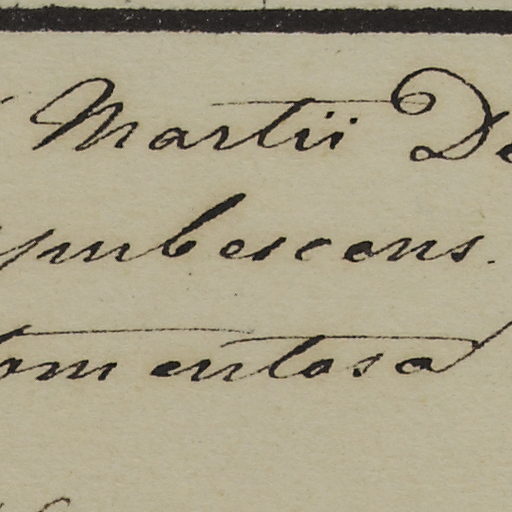 Martii De
pubescens.
tomentosa